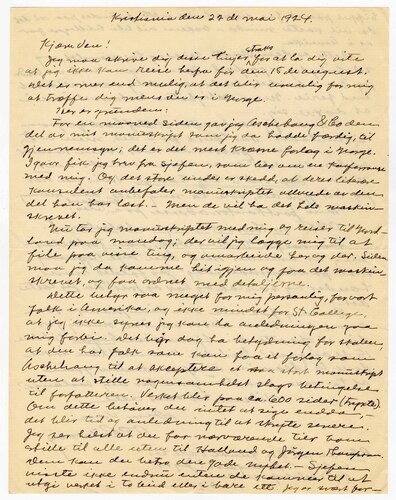 Kristiania den 22 de mai 1924.
Kjære ven!
Jeg maa skrive dig disse linjer straks for at la dig vite
at jeg ikke kan reise herfra før den 15 de august.
Det er mer end mulig, at det blir umulig for mig
at træffe dig mens du er i Norge.
Her er grunden:
For en maaned siden gav jeg Aschehoug & Co den
del av mit manuskript som jeg da hadde færdig, til
gjennemsyn; det er det mest kræsne forlag i Norge.
Igaar fik jeg bro fra Sjefen, som bør om en konferanse
med mig. Og det store under er skedd, at deres literære
konsulent anbefaler manuskriptet udover av den
del han har læst. — Men de vil ha det hele maskin-
skrevet.
Nu tar jeg manuskriptet med mig og reiser til Nord-
land paa mandag; der vil jeg lægge mig til at
file paa visse ting, og omarbeide her og der. Siden
maa jeg da komme hit igjen og faa det maskin-
skrevet, og faa ordnet med detaljerne.
Dette betyr saa meget for mig personlig, for vort
folk i Amerika, og ikke mindst for St. College,
at jeg ikke synes jeg kan la anledningen gaa
mig forbi. Det bør dog ha betydning for skolen,
at den har folk som kan faa et forlag som
Aschehoug til at akseptere et saa stort manuskript
uten at stille nogensomhelst slags betingelse
til forfatteren. Verket blir paa ca 600 sider (trykte).
Om dette behøver du intet at si endda;
det blir tid og anledning til at skryte senere.
Jeg ser helst at du for nærværende tier bom
stille til alle uten til Holland og Jørgen Thompson.
Dem kan du betro den gode nyhet. — Sjefen
visste ikke endnu enten de kommer til at
utgi verket i to bind eller i bare ett. For mæt for —